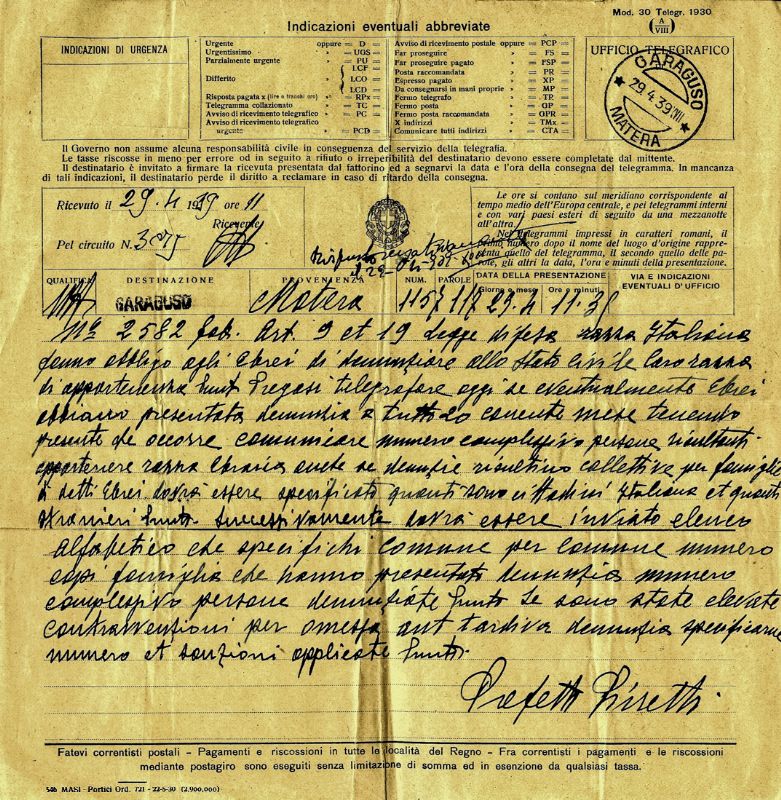 Mod. 30 Telegr. 1930
(A/VIII)
Indicazioni eventuali abbreviate
INDICAZIONI DI URGENZA
Urgente oppure = D =
Urgentissimo » = UGS =
Parzialmente urgente » = PU =
Differito » = LCF =
= LCO =
= LCD =
Risposta pagata x (lire o franchi oro) » = RPx =
Telegramma collazionato » = TC =
Avviso di ricevimento telegrafico » = PC =
Avviso di ricevimento telegrafico
urgente » = PCD =
Avviso di ricevimento postale oppure = PCP =
Far proseguire » = FS =
Far proseguire pagato » = FSP =
Posta raccomandata » = PR =
Espresso pagato » = XP =
Da consegnarsi in mani proprie » = MP =
Fermo telegrafo » = TR =
Fermo posta » = GP =
Fermo posta raccomandata » = GPR =
X indirizzi » = TMx =
Comunicare tutti indirizzi » = CTA =
UFFICIO TELEGRAFICO
GARAGUSO
29.4.39.XVII
MATERA
Il Governo non assume alcuna responsabilità civile in conseguenza del servizio della telegrafia.
Le tasse riscosse in meno per errore od in seguito a rifiuto o irreperibilità del destinatario devono essere completate dal mittente.
Il destinatario è invitato a firmare la ricevuta presentata dal fattorino ed a segnarvi la data e l'ora della consegna del telegramma. In mancanza
di tali indicazioni, il destinatario perde il diritto a reclamare in caso di ritardo della consegna.
Ricevuto il 29.4 1939 ore 11
Ricevente
Pel circuito N.
Le ore si contano sul meridiano corrispondente al
tempo medio dell'Europa centrale, e pei telegrammi interni
e con vari paesi esteri di seguito da una mezzanotte
all'altra.
Nei telegrammi impressi in caratteri romani, il
numero dopo il nome del luogo d'origine rappre-
senta quello del telegramma, il secondo quello delle pa-
role, gli altri la data, l'ora e minuti della presentazione.
QUALIFICA DESTINAZIONE PROVENIENZA NUM. PAROLE DATA DELLA PRESENTAZIONE VIA E INDICAZIONI
Giorno e mese Ore e minuti EVENTUALI D'UFFICIO
GARAGUSO Matera 1157 117 29.4 11.35
N° 2582 Gab. Art. 9 et 19 Legge difesa razza Italiana
fanno obbligo agli Ebrei di denunziare allo Stato Civile loro razza
di appartenenza punto Pregasi telegrafare oggi se eventualmente Ebrei
abbiano presentata denunzia a tutto 20 corrente mese tenendo
presente che occorre comunicare numero complessivo persone risultanti
appartenere razza Ebraica anche se denunzie risultino collettive per famiglie
di detti Ebrei dovrà essere specificato quanti sono cittadini Italiani et quanti
stranieri punto Successivamente dovrà essere inviato elenco
alfabetico che specifichi Comune per Comune numero
capi famiglia che hanno presentato denunzia numero
complessivo persone denunziate punto Se sono state elevate
contravvenzioni per omessa aut tardiva denunzia specificarne
numero et sanzioni applicate punto
Prefetto
Fatevi correntisti postali - Pagamenti e riscossioni in tutte le località del Regno - Fra correntisti i pagamenti e le riscossioni
mediante postagiro sono eseguiti senza limitazione di somma ed in esenzione da qualsiasi tassa.
546 MASI - Portici Ord. 721 - 22-5-30 (2.900.000)